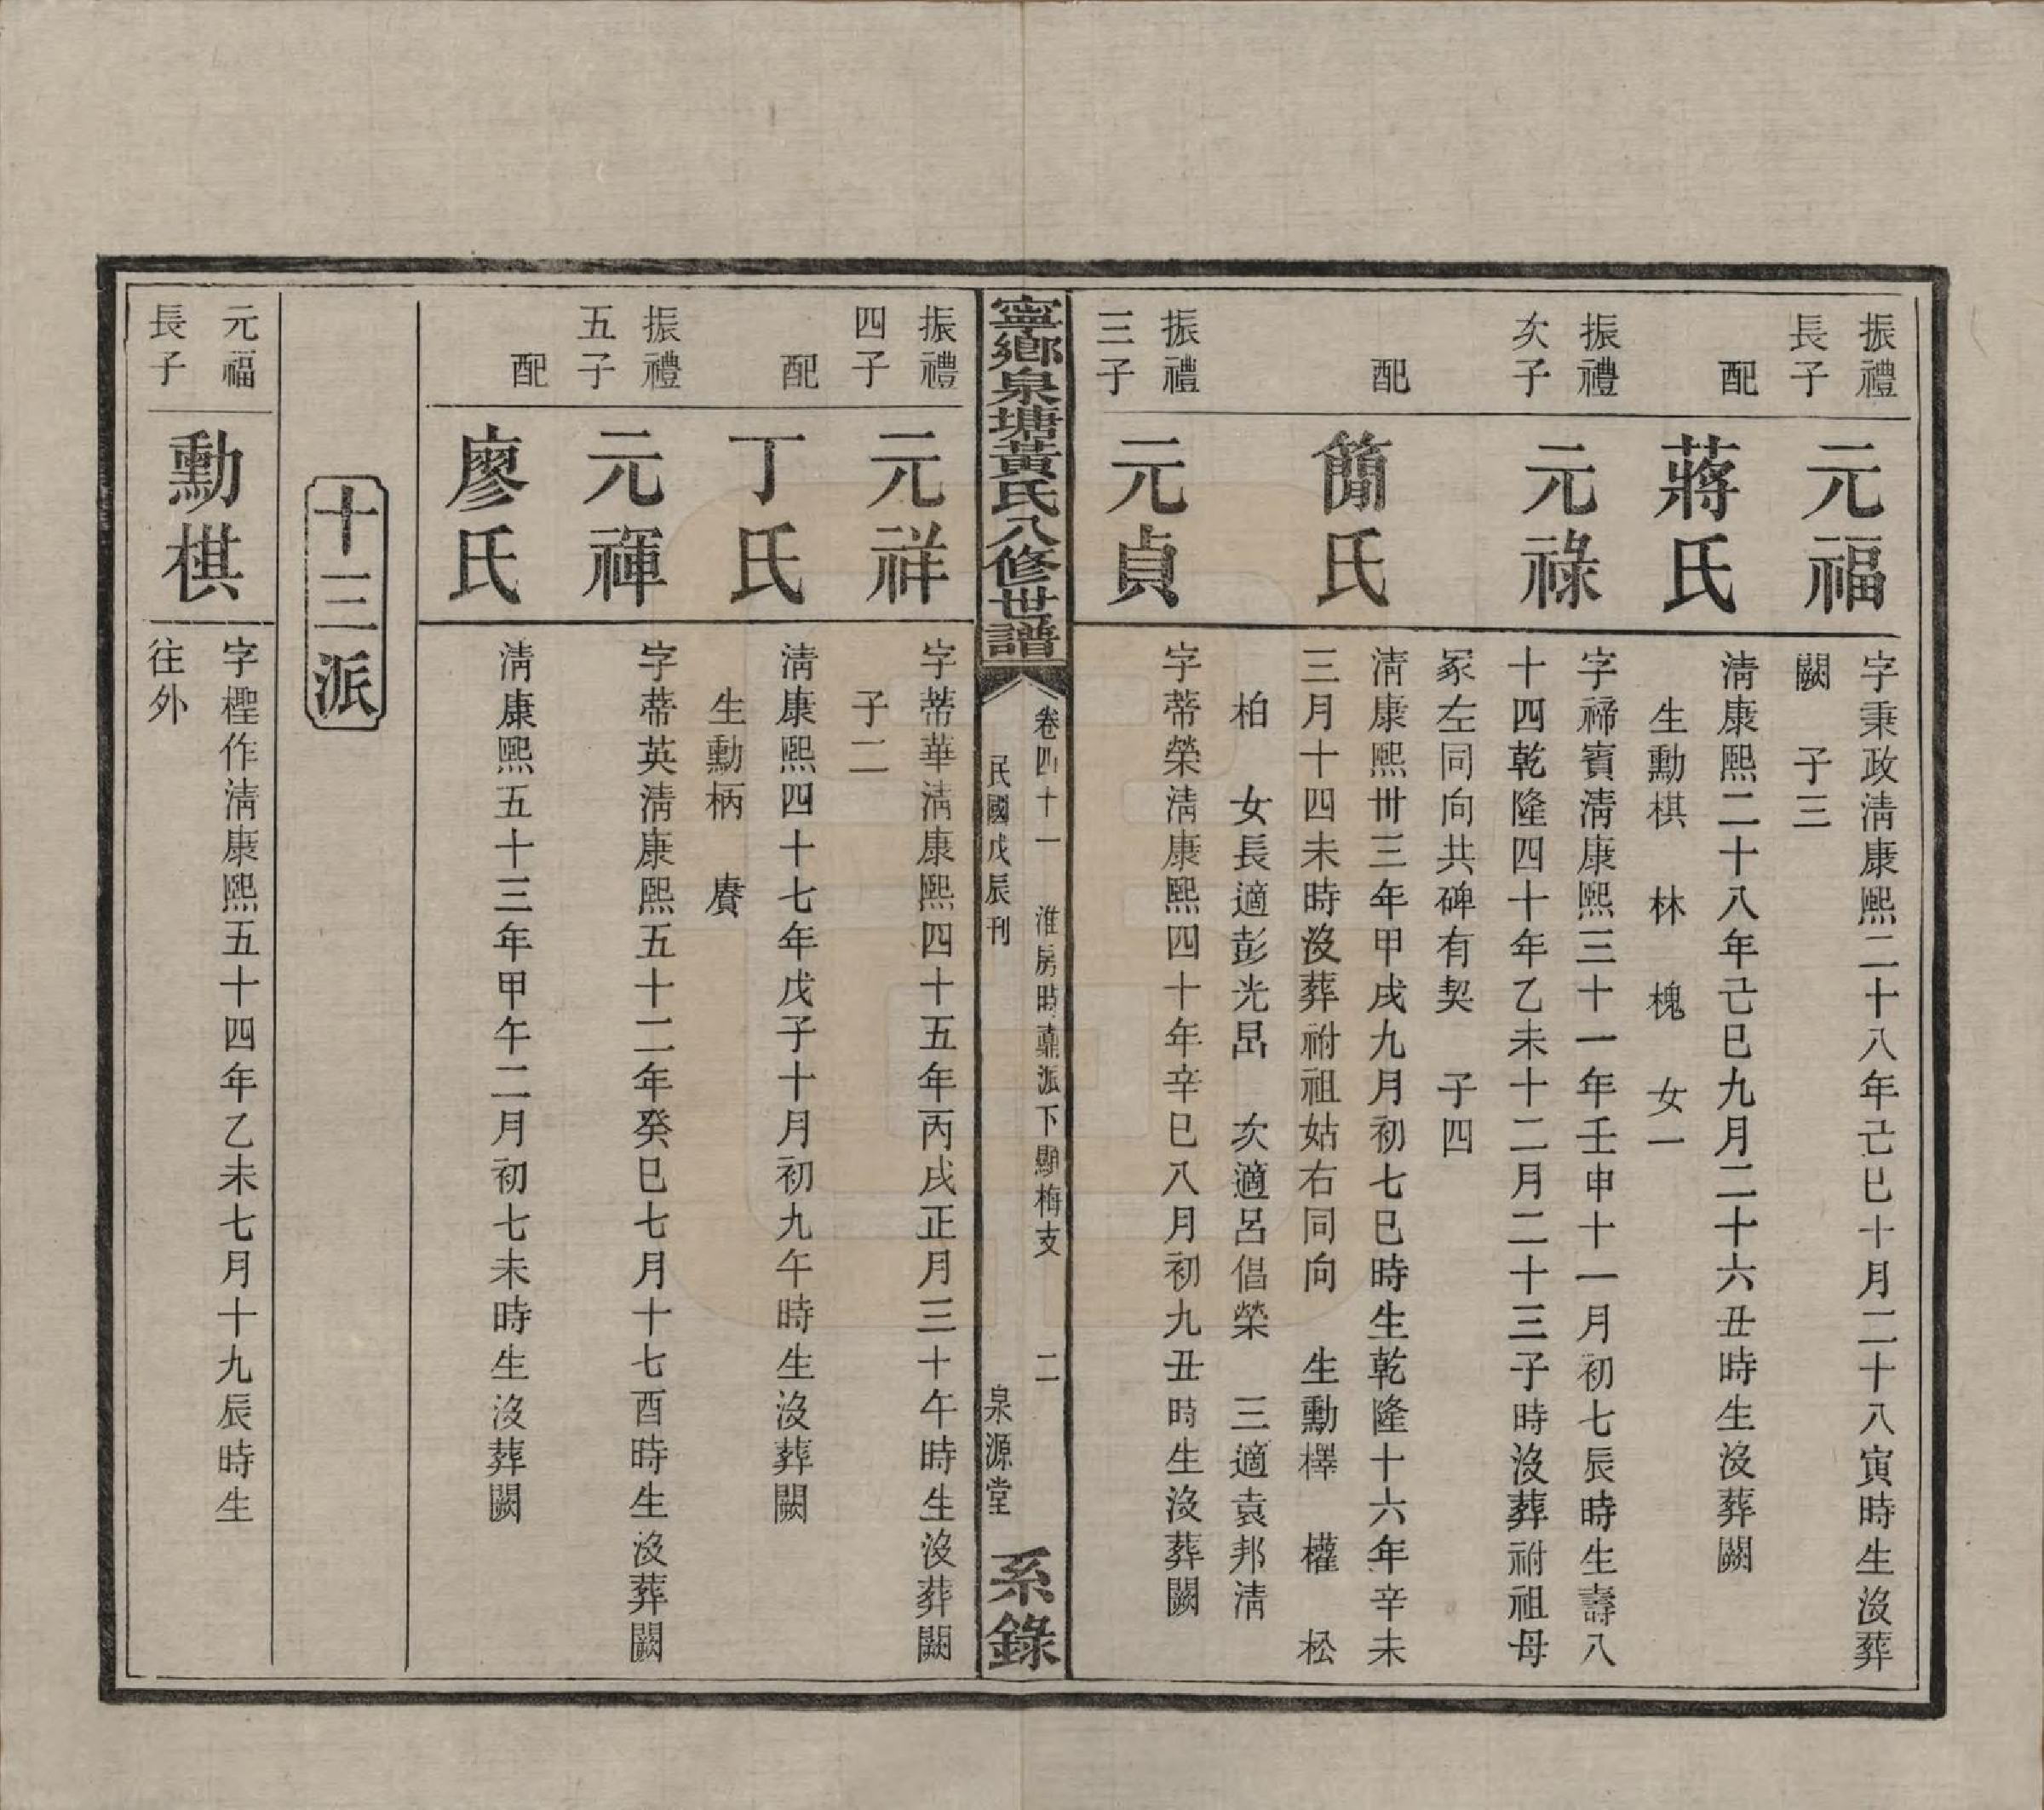 振禮
長子
元福
字秉政淸康熙二十八年己巳十月二十八寅時生沒葬
闕　子三
配
蔣氏
淸康熙二十八年己巳九月二十六丑時生沒葬闕
生勳棋　林　槐　女一
振禮
次子
元祿
字褅賓淸康熙三十一年壬申十一月初七辰時生壽八
十四乾隆四十年乙未十二月二十三子時沒葬祔祖母
冢左同向共碑有契　子四
配
簡氏
淸康熙卅三年甲戌九月初七巳時生乾隆十六年辛未
三月十四未時沒葬祔祖姑右同向　生勳檡　權　松
柏　女長適彭光昺　次適呂倡榮　三適袁邦淸
振禮
三子
元貞
字蒂榮淸康熙四十年辛巳八月初九丑時生沒葬闕
寧鄉泉塘黃氏八修世譜
卷四十一　淮房時鼒派下顯梅支　二
民國戊辰刊　泉源堂
系錄
振禮
四子
元祥
字蒂華淸康熙四十五年丙戌正月三十午時生沒葬闕
子二
配
丁氏
淸康熙四十七年戊子十月初九午時生沒葬闕
生勳柄　賡
振禮
五子
元禈
字蒂英淸康熙五十二年癸巳七月十七酉時生沒葬闕
配
廖氏
淸康熙五十三年甲午二月初七未時生沒葬闕
十三派
元福
長子
勳棋
字檉作淸康熙五十四年乙未七月十九辰時生
往外